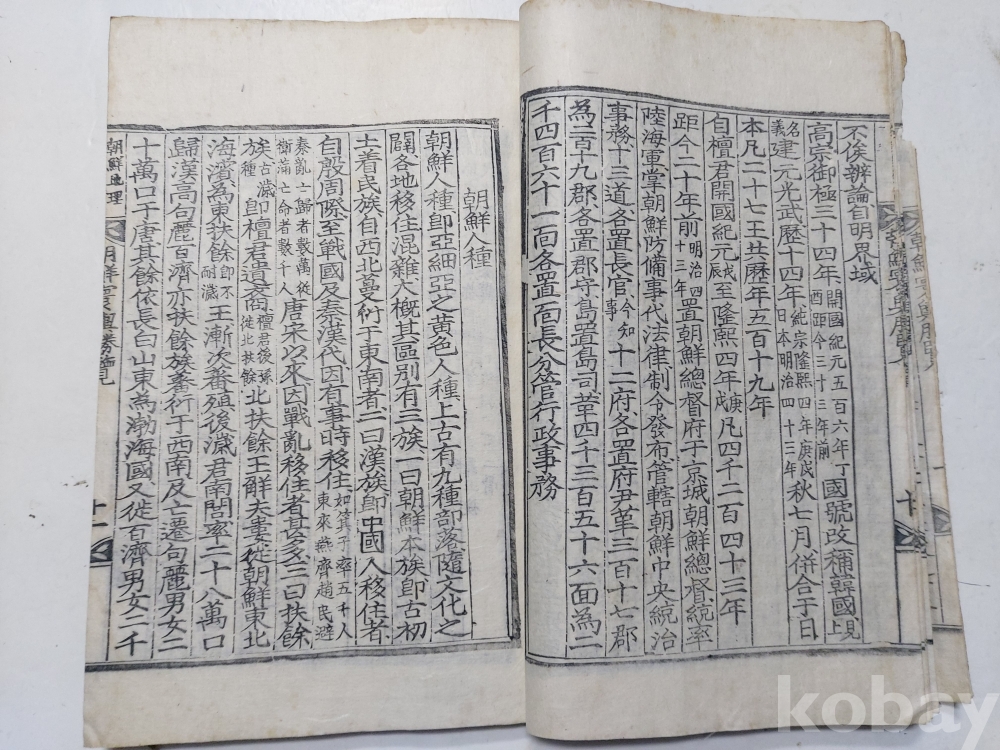 不俟辨論自明界域
高宗御極三十四年開國紀元五百六年丁酉距今三十三年前國號改稱韓國上見
名義建元光武歷十四年純宗隆熙四年庚戌日本明治四十三年秋七月併合于日
本凡二十七王共歷年五百十九年
自檀君開國紀元戊辰至隆熙四年庚戌凡四千二百四十三年
距今二十年前明治四十三年置朝鮮總督府于京城朝鮮總督統率
陸海軍掌朝鮮防備事代法律制令發布管轄朝鮮中央統治
事務十三道各置長官今知事十二府各置府尹革三百十七郡
為二百十九郡各置郡守島置島司革四千三百五十六面為二
千四百六十一面各置面長分管行政事務
朝鮮人種
朝鮮人種卽亞細亞之黃色人種上古有九種部落隨文化之
闢各地移住混雜大槪其區别有三族一曰朝鮮本族卽古初
土着民族自西北蔓衍于東南者二曰漢族卽中國人移住者
自殷周際至戰國及秦漢代因有事時移住如箕子率五千人東來燕齊趙民避
秦亂士歸者數萬從衛滿亡命者數千人唐宋以來因戰亂移住者甚多三曰扶餘
族古濊種卽檀君遺裔檀君後孫徙北扶餘北扶餘王解夫婁徙朝鮮東北
海濱爲東扶餘卽不耐濊王漸次蕃殖後濊君南閭率二十八萬口
歸漢高句麗百濟亦扶餘族蕃衍于西南及亡遷句麗男女二
十萬口于唐其餘依長白山東為渤海國又徙百濟男女二千
朝鮮地理
十一
kobay